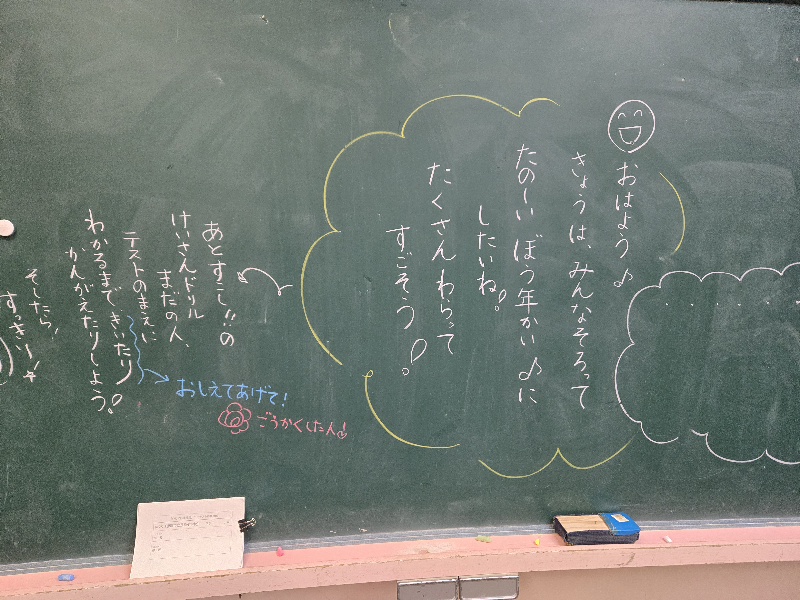 おはよう♪
きょうは、みんなそろって
たのしい ぼう年かい♪に
したいね。
たくさん わらって
すごそう!。
あとすこし!!の
けいさんドリル
まだの人、
テストのまえに
わかるまで きいたり
かんがえたりしよう。
そしたら!
すっきり!☆
おしえてあげて!
ごうかくした人!